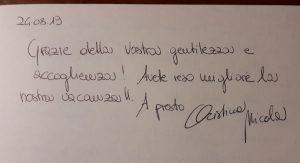 24.08.13
Grazie della vostra gentilezza e
accoglienza! Avete reso migliore la
nostra vacanza!!
A presto Cristina
Nicola